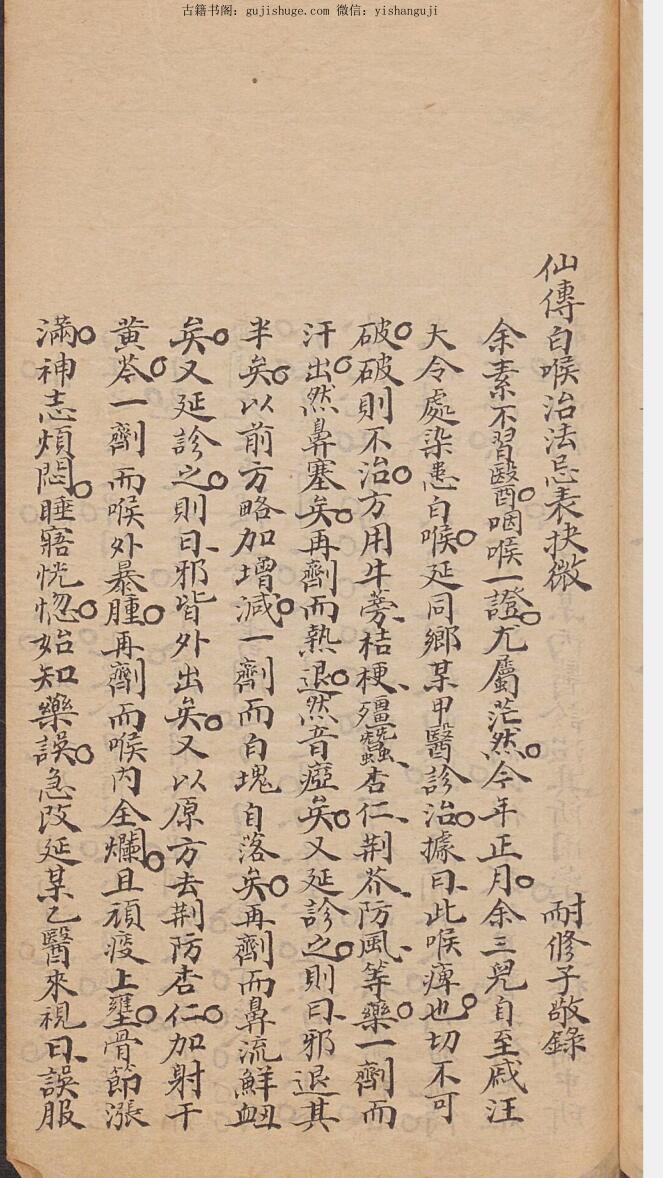 古籍书阁：gujishuge.com 微信：yishanguji
仙傳白喉治法忌表抉微　耐修子敬錄
余素不習醫。咽喉一證。尤屬茫然。今年正月。余三兒自至戚汪
大令處染患白喉。延同鄉某甲醫診治。據曰、此喉痺也。切不可
破。破則不治。方用牛蒡、桔梗、殭蠶、杏仁、荆芥、防風、等藥。一劑而
汗出。然鼻塞矣。再劑而熱退。然音瘂矣。又延診之。則曰、邪退其
半矣。以前方略加增減。一劑而白塊自落矣。再劑而鼻流鮮衄
矣。又延診之。則曰、邪皆外出矣。又以原方去荆防杏仁。加射干
黄芩。一劑而喉外暴腫。再劑而喉内全爛。且頑痰上壅。骨節漲
滿。神志煩悶。睡寤恍惚。始知藥誤。急改延某乙醫來視曰、誤服